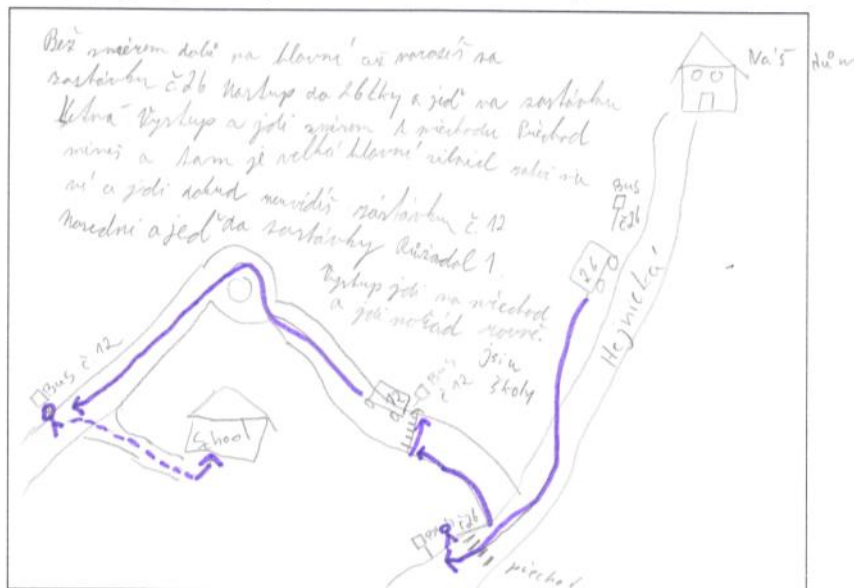 Běž směrem dolů na hlavní až narazíš na
zastávku č.26 Nastup do 26tky a jeď na zastávku
Letná Vystup a jdi směrem k přechodu Přechod
mineš a tam je velká hlavní silnice
ní a jdi dokud neuvidíš zastávku č.12
Nasedni a jeď do zastávky 1
Vystup jdi na přechod
a jdi pořád rovně.
jsi u
školy
Náš dům
BUS
č26
26
Hejnická
BUS č 12
12
BUS
č 12
School
č26
přechod